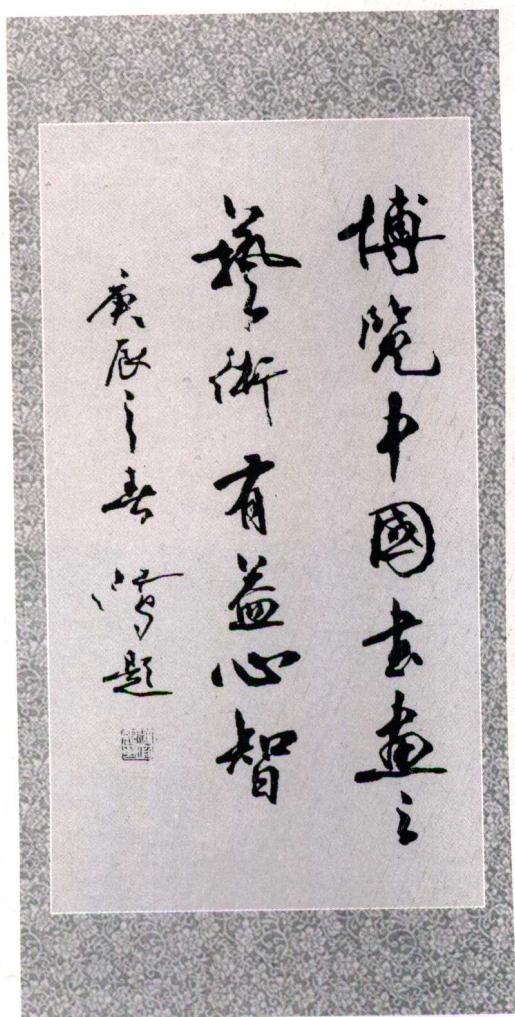 博覽中國书畫之
藝術有益心智
庚辰之春 題